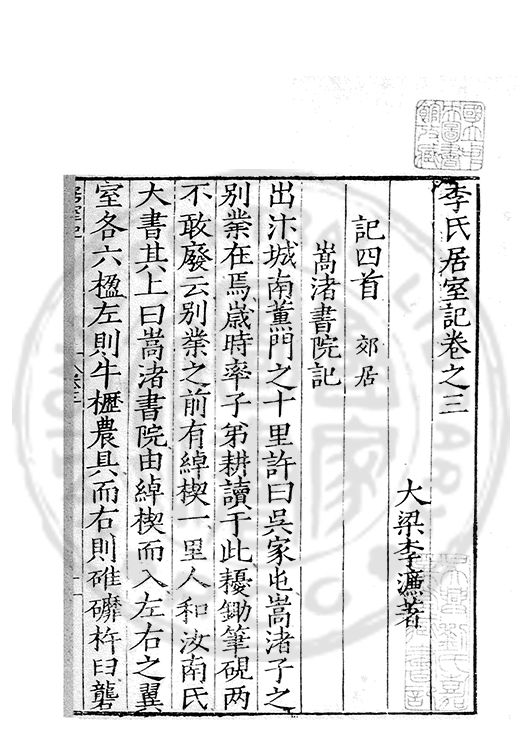 李氏居室記卷之三
大梁李濂著
記四首 郊居
嵩渚書院記
出汴城南薰門之十里許曰吳家屯嵩渚子之
別業在焉歲時率子弟耕讀于此耰鋤筆硯两
不敢廢云別業之前有綽楔一里人和汝南氏
大書其上曰嵩渚書院由綽楔而入左右之翼
室各六楹左則牛櫪農具而右則碓磨杵臼礱